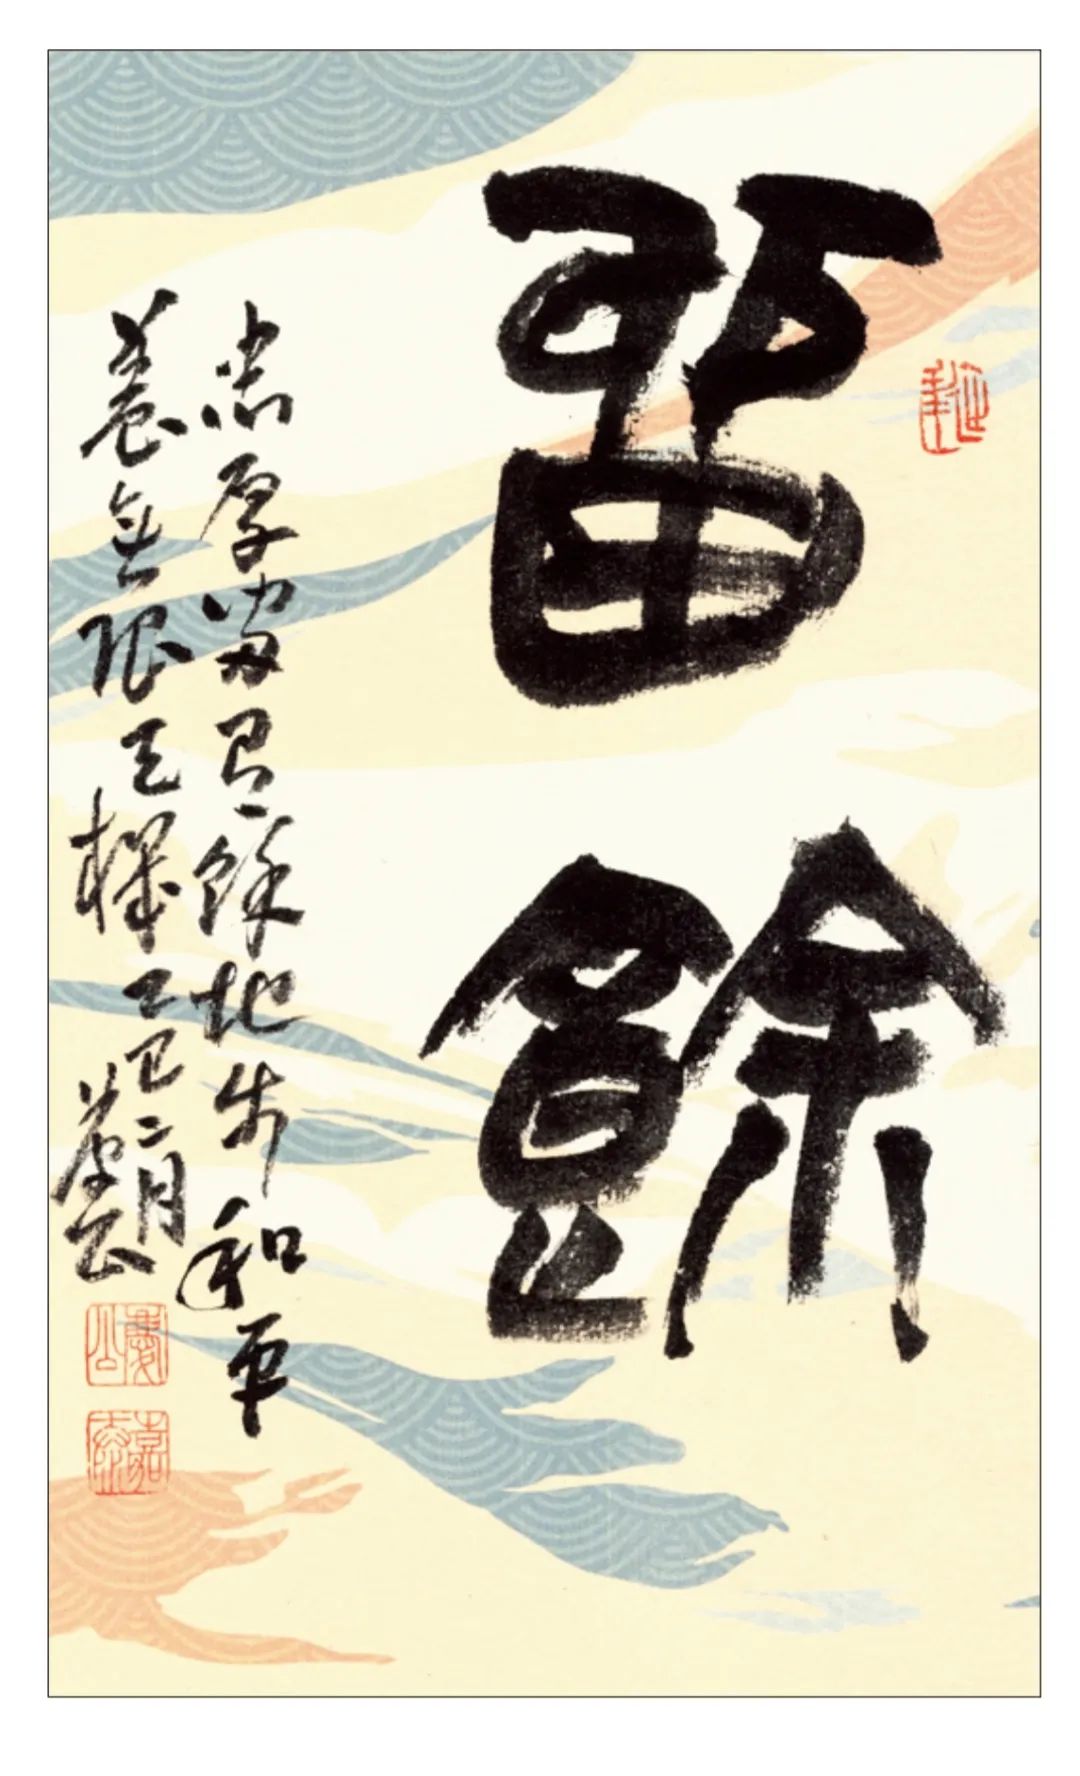 留餘
忠厚留有餘地步和平
養無限天機乙巳二月